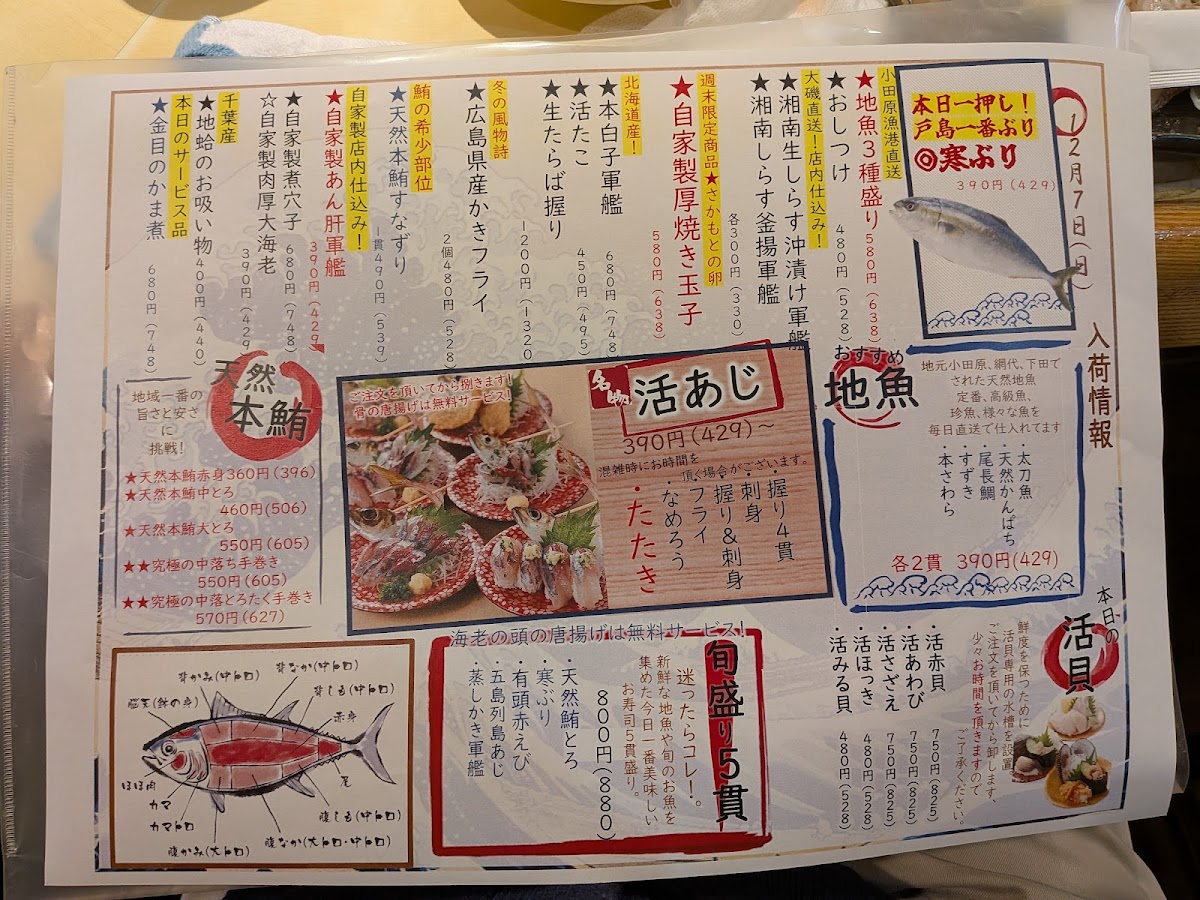 12月7日(日)
入荷情報
本日一押し!
戸島一番ぶり
◎寒ぶり
390円(429)
小田原漁港直送
★地魚3種盛り580円(638)
★おしつけ 480円(528)
大磯直送!店内仕込み!
★湘南生しらす沖漬け軍艦
★湘南しらす釜揚軍艦
各300円(330)
週末限定商品★さかもとの卵
★自家製厚焼き玉子
580円(638)
北海道産!
★本白子軍艦 680円(748
★活たこ 450円(495
★生たらば握り
1200円(1320
冬の風物詩
★広島県産かきフライ
2個480円(528)
鮪の希少部位
★天然本鮪すなずり
一貫490円(539)
自家製店内仕込み!
★自家製あん肝軍艦
390円(429)
★自家製煮穴子 680円(748)
☆自家製肉厚大海老
390円(429
千葉産
★地蛤のお吸い物400円(440)
本日のサービス品
★金目のかま煮 680円(748)
おすすめ
地魚
地元小田原、網代、下田で
された天然地魚
定番、高級魚、
珍魚、様々な魚を
毎日直送で仕入れてます
・太刀魚
・天然かんぱち
・尾長鯛
・すずき
・本さわら
各2貫 390円(429)
名物
活あじ
390円(429)~
ご注文を頂いてから捌きます!
骨の唐揚げは無料サービス!
混雑時にお時間を
頂く場合がございます。
・握り4貫
・刺身
・握り&刺身
・フライ
・なめろう
・たたき
天然
本鮪
地域一番の
旨さと安さ
に
挑戦!
★天然本鮪赤身360円(396)
★天然本鮪中とろ
460円(506)
★天然本鮪大とろ
550円(605)
★★究極の中落ち手巻き
550円(605)
★★究極の中落とろたく手巻き
570円(627)
本日の
活貝
鮮度を保つために
活貝専用の水槽を設置
ご注文を頂いてから卸します、
少々お時間を頂きますので
ご了承ください。
・活赤貝 750円(825)
・活あわび 750円(825)
・活さざえ 750円(825)
・活ほっき 480円(528)
・活みる貝 480円(528)
海老の頭の唐揚げは無料サービス!
旬盛り5貫
迷ったらコレ!。
新鮮な地魚や旬のお魚を
集めた今日一番美味しい
お寿司5貫盛り。
800円(880)
・天然鮪とろ
・寒ぶり
・有頭赤えび
・五島列島あじ
・蒸しかき軍艦
背なか(中トロ)
背かみ(中トロ)
背しも(中トロ)
脳天(鉢の身)
赤身
ほほ肉
尾
カマ
カマトロ
腹しも(中トロ)
腹なか(大トロ・中トロ)
腹かみ(大トロ)